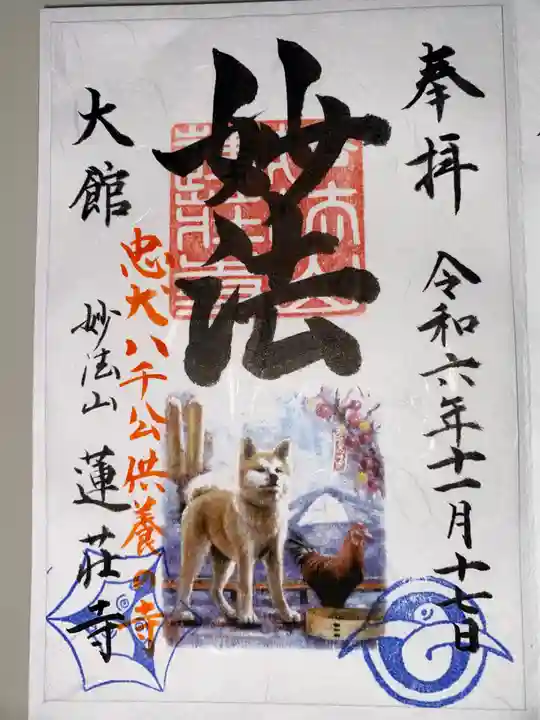 奉拝
令和六年十一月十七日
妙法
忠犬ハチ公供養の寺
大館
妙法山 蓮荘寺